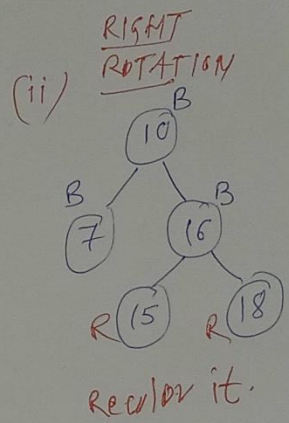 RIGHT
ROTATION
(ii)
B
10
B
B
7
16
R 15
R 18
Recolor it.